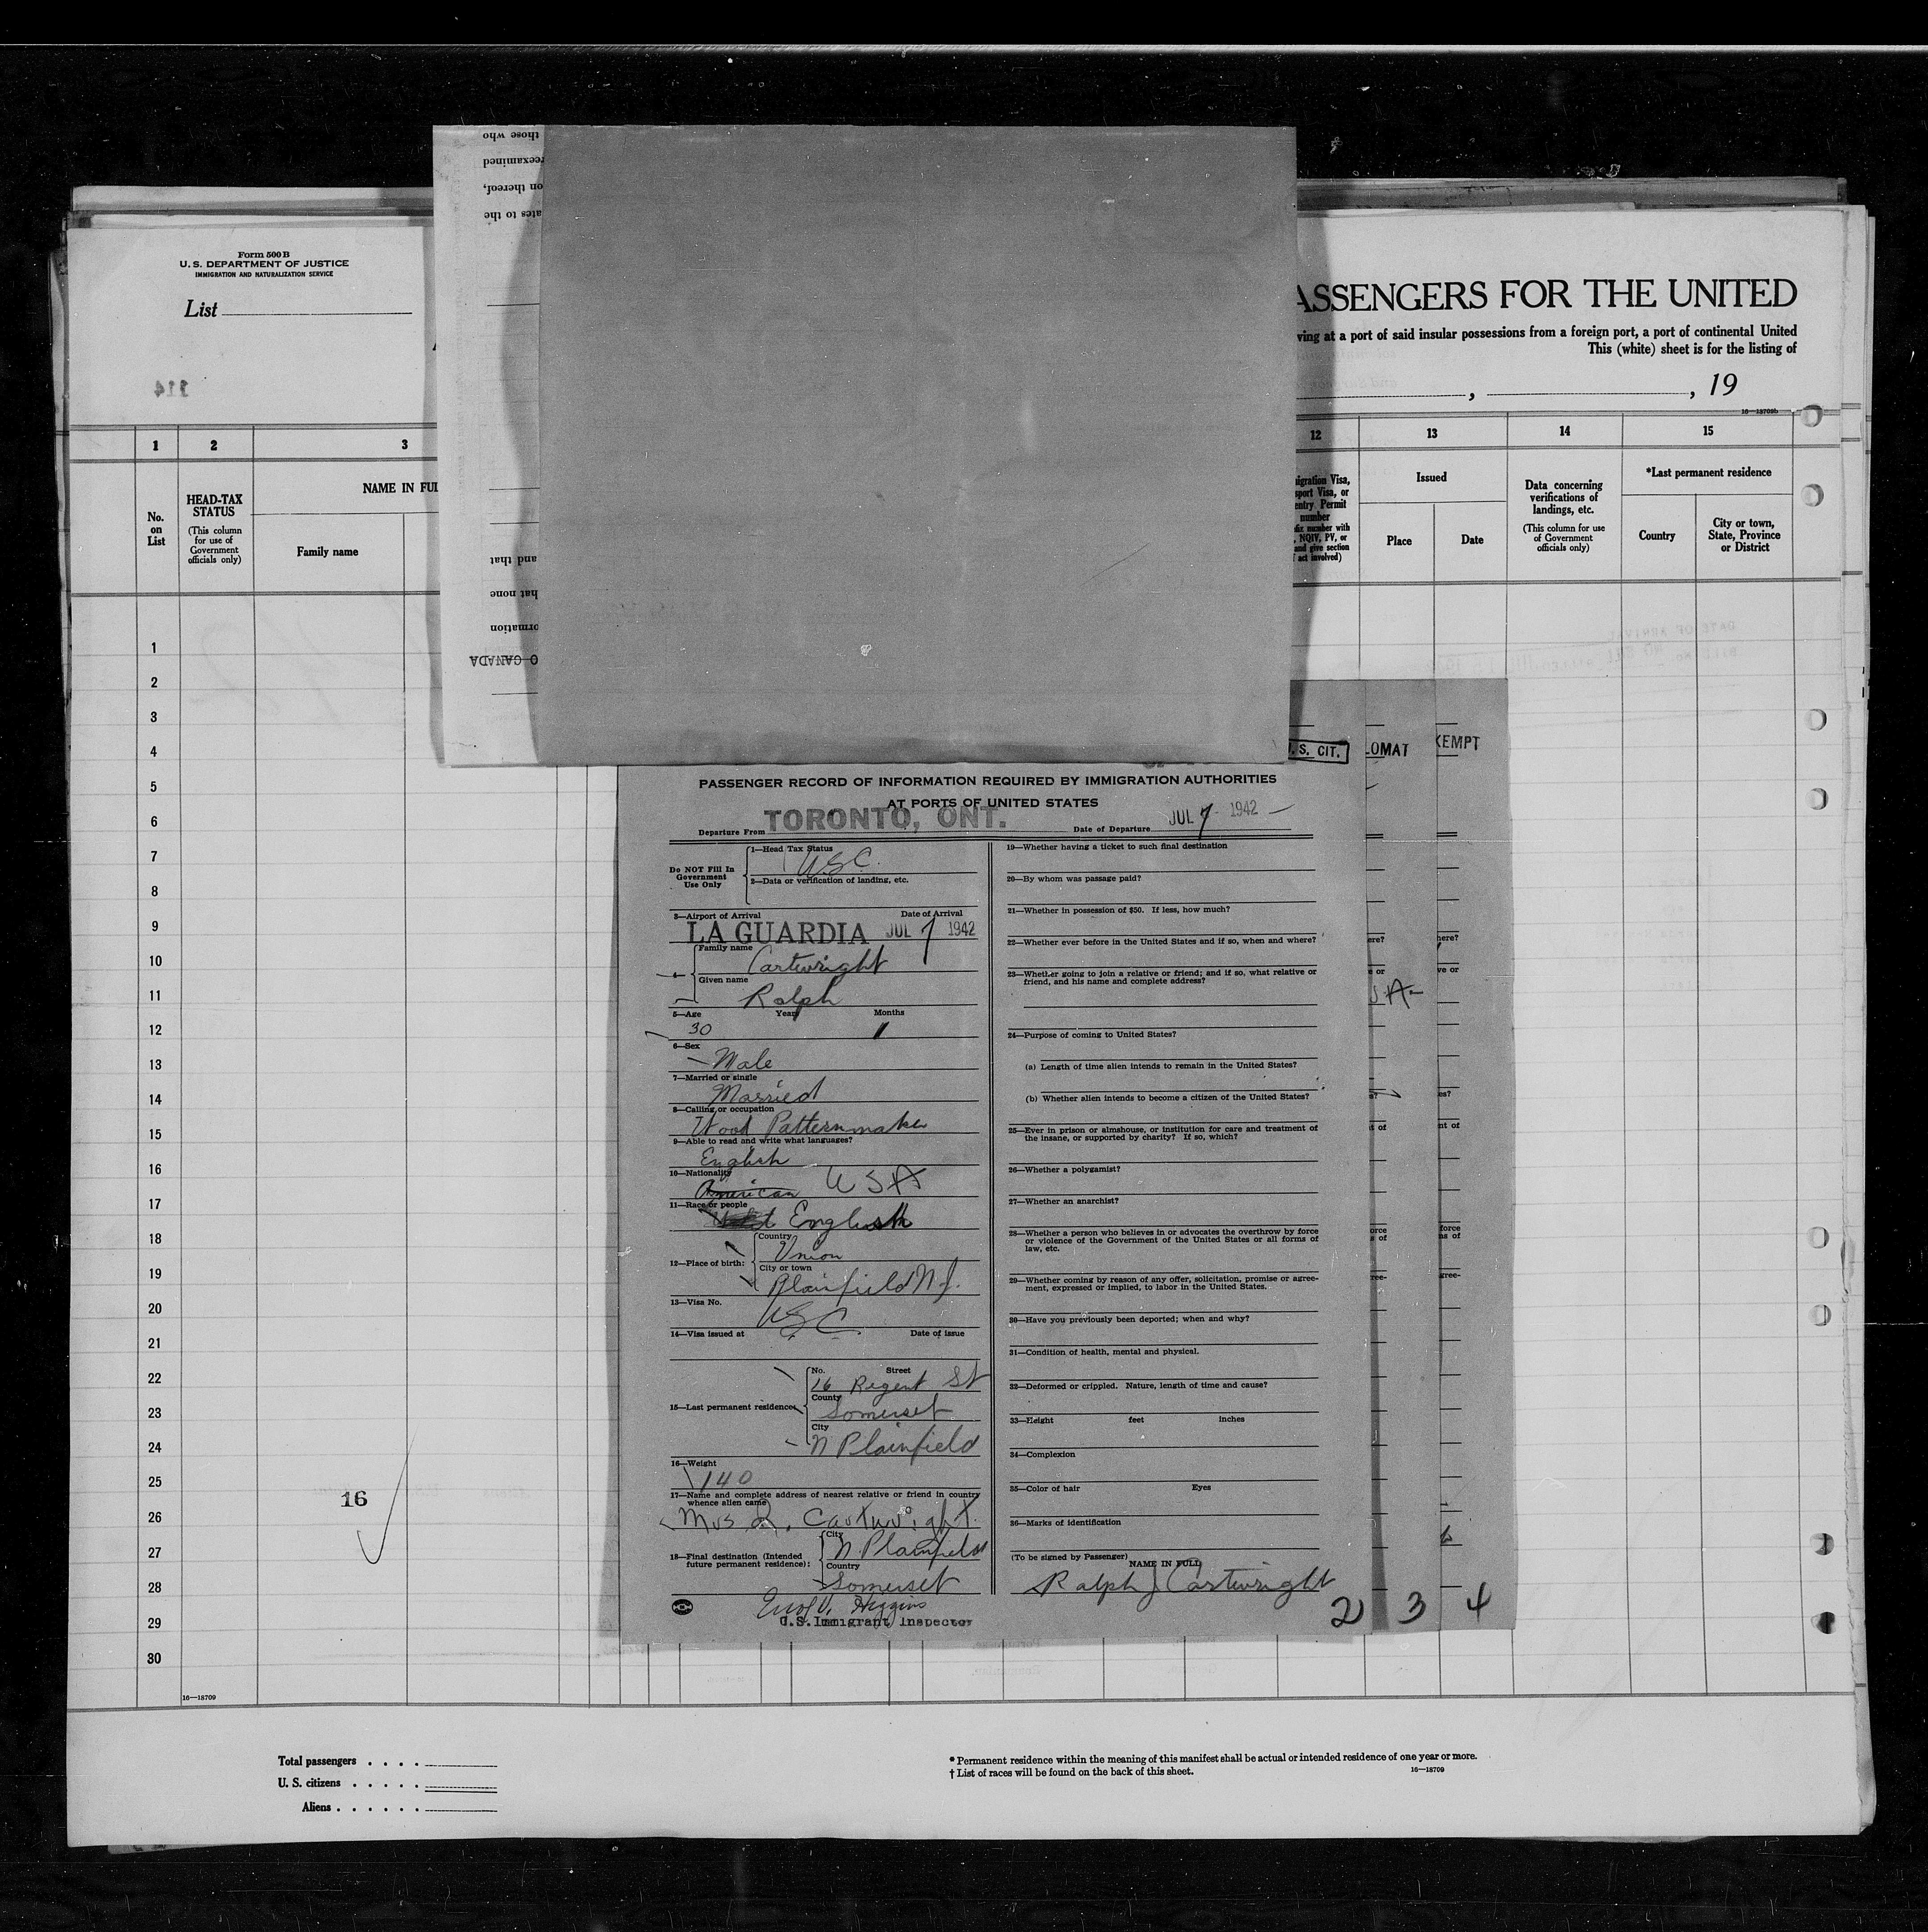 those who
reexamined
on thereof,
ates to the
Form 500 B
U. S. DEPARTMENT OF JUSTICE
IMMIGRATION AND NATURALIZATION SERVICE
List
114
ASSENGERS FOR THE UNITED
ving at a port of said insular possessions from a foreign port, a port of continental United
This (white) sheet is for the listing of
, , 19
16—18709b
1 2 3 12 13 14 15
No. on List
HEAD-TAX STATUS
(This column for use of Government officials only)
NAME IN FUL
Family name
and that
hat none
ormation
O CANADA
igration Visa,
sport Visa, or
entry Permit
number
fix number with
, NQIV, PV, or
and give section
f act involved)
Issued
Place
Date
Data concerning verifications of landings, etc.
(This column for use of Government officials only)
*Last permanent residence
Country
City or town, State, Province or District
DATE OF ARRIVAL
1
2
3
4
5
6
7
8
9
10
11
12
13
14
15
16
17
18
19
20
21
22
23
24
25
26
27
28
29
30
16
16—18709
U. S. CIT.
LOMAT
XEMPT
PASSENGER RECORD OF INFORMATION REQUIRED BY IMMIGRATION AUTHORITIES
AT PORTS OF UNITED STATES
Departure From TORONTO, ONT. Date of Departure JUL 7 1942
Do NOT Fill In Government Use Only
1—Head Tax Status
U.S.C.
2—Data or verification of landing, etc.
3—Airport of Arrival Date of Arrival
LA GUARDIA JUL 7 1942
4—
Family name
Cartwright
Given name
Ralph
5—Age Years Months
30
6—Sex
Male
7—Married or single
Married
8—Calling or occupation
Wood Patternmaker
9—Able to read and write what languages?
English
10—Nationality
American USA
11—Race or people
English
12—Place of birth:
Country
Union
City or town
Plainfield N.J.
13—Visa No.
USC
14—Visa issued at Date of issue
15—Last permanent residence
No. Street
16 Regent St
County
Somerset
City
N Plainfield
16—Weight
140
17—Name and complete address of nearest relative or friend in country
whence alien came
Mrs R. Cartwright
18—Final destination (Intended
future permanent residence):
City
N. Plainfield
Country
Somerset
Higgins
U.S.Immigrant Inspector
19—Whether having a ticket to such final destination
20—By whom was passage paid?
21—Whether in possession of $50. If less, how much?
22—Whether ever before in the United States and if so, when and where?
23—Whether going to join a relative or friend; and if so, what relative or
friend, and his name and complete address?
24—Purpose of coming to United States?
(a) Length of time alien intends to remain in the United States?
(b) Whether alien intends to become a citizen of the United States?
25—Ever in prison or almshouse, or institution for care and treatment of
the insane, or supported by charity? If so, which?
26—Whether a polygamist?
27—Whether an anarchist?
28—Whether a person who believes in or advocates the overthrow by force
or violence of the Government of the United States or all forms of
law, etc.
29—Whether coming by reason of any offer, solicitation, promise or agree-
ment, expressed or implied, to labor in the United States.
30—Have you previously been deported; when and why?
31—Condition of health, mental and physical.
32—Deformed or crippled. Nature, length of time and cause?
33—Height feet inches
34—Complexion
35—Color of hair Eyes
36—Marks of identification
(To be signed by Passenger)
NAME IN FULL
Ralph J Cartwright
2 3 4
ere? here?
e or ve or
SA
es?
t of nt of
orce force
s of ns of
ree- gree-
Total passengers . . . .
U. S. citizens . . . . .
Aliens . . . . . .
* Permanent residence within the meaning of this manifest shall be actual or intended residence of one year or more.
† List of races will be found on the back of this sheet.
16—18709